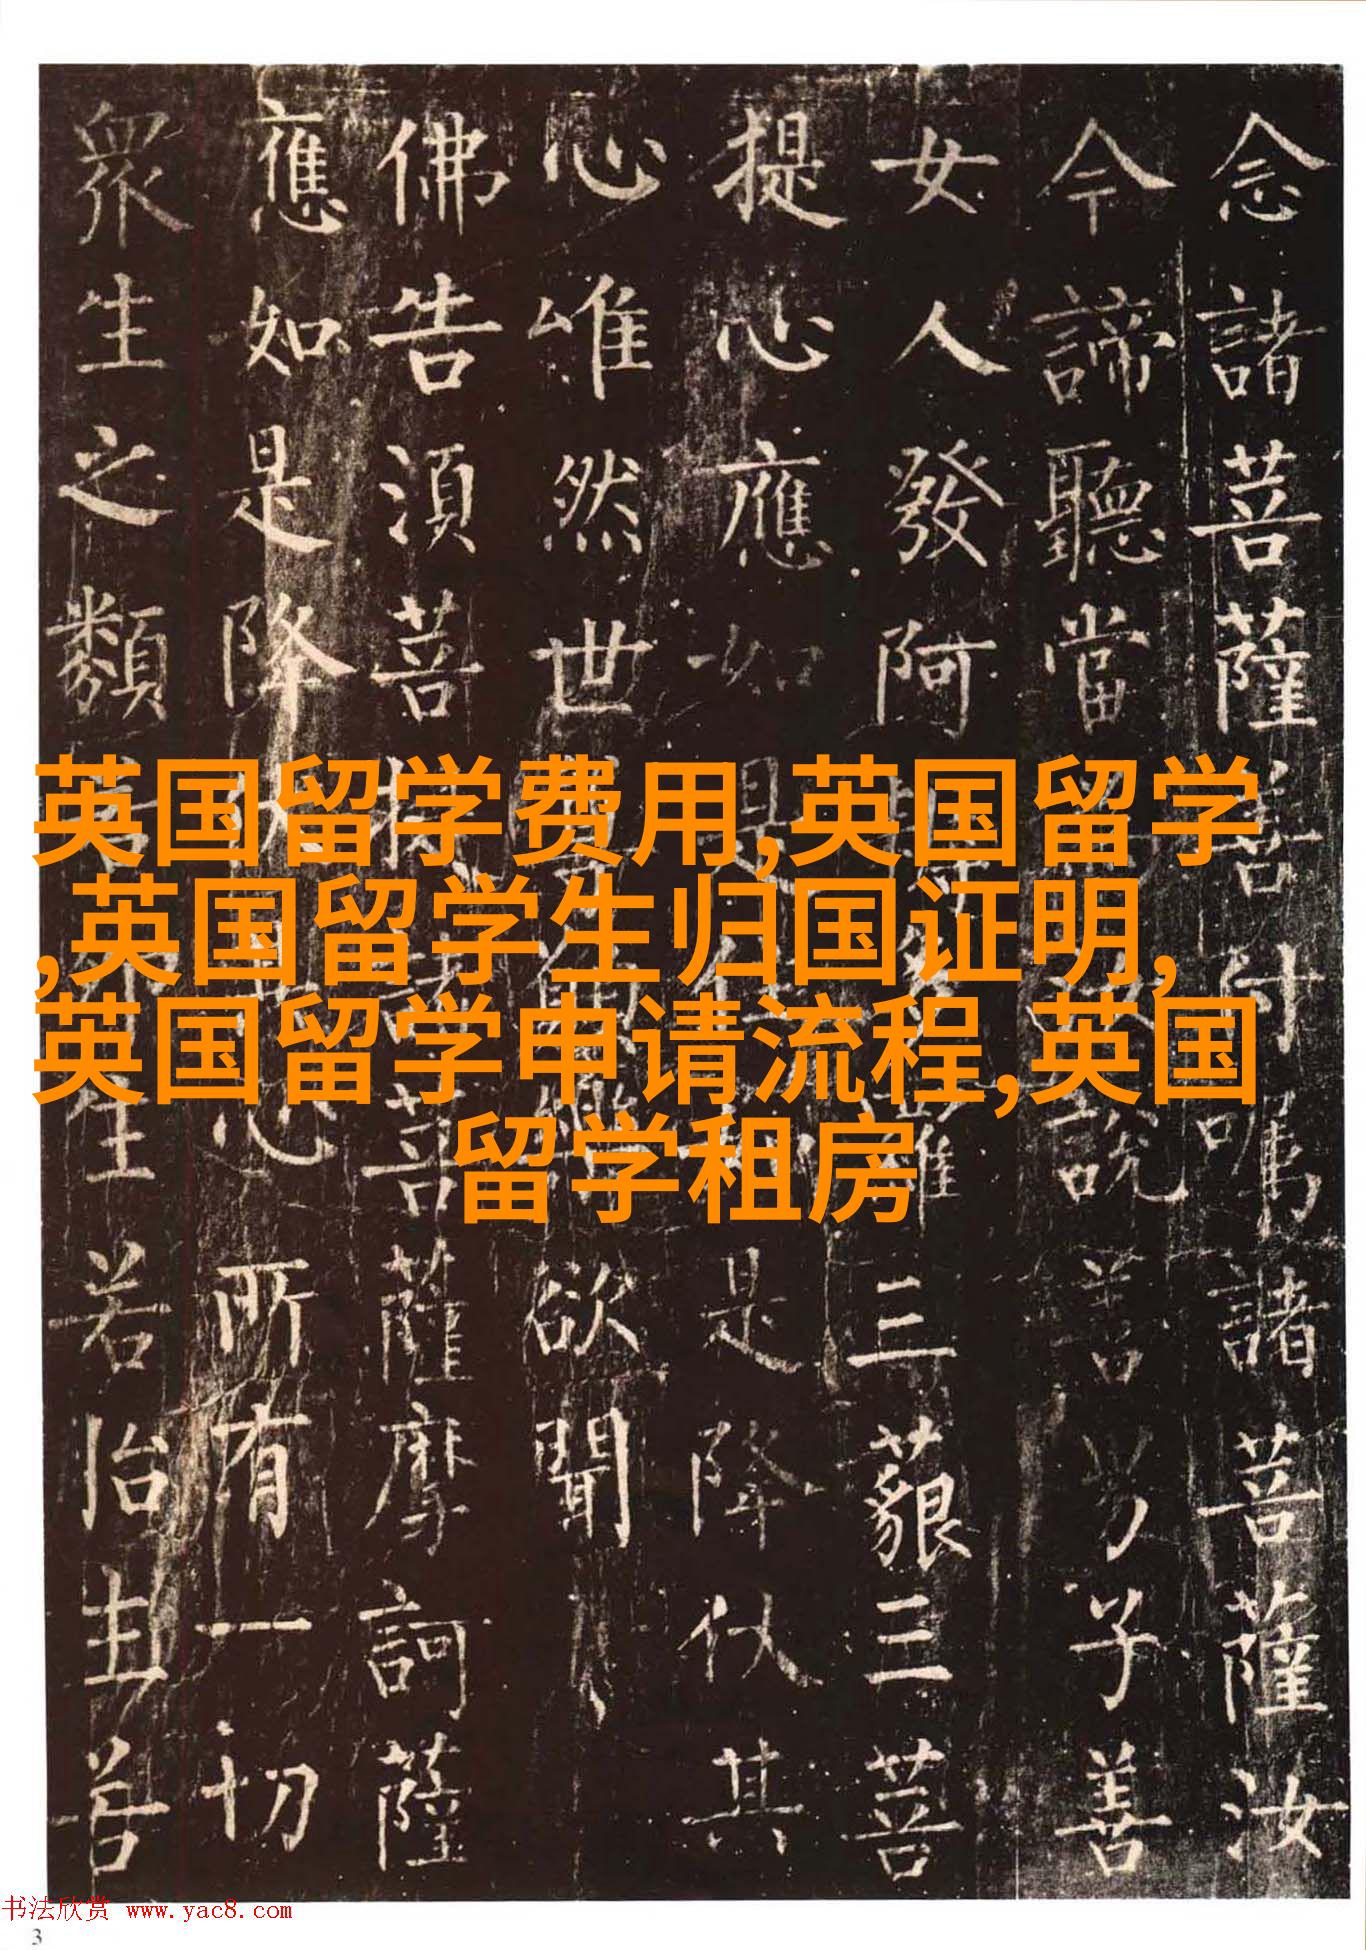 念諸菩薩善付囑諸菩薩汝
今諦聽當說善男子善
女人發阿羅三藐三菩
提心應如是是降伏其
心唯然世欲聞
佛告須菩菩薩摩訶薩
應如是降心所有一切
眾生之類生若胎生若
英国留学费用,英国留学
,英国留学生归国证明,
英国留学申请流程,英国
留学租房
书法欣赏 www.yac8.com
3